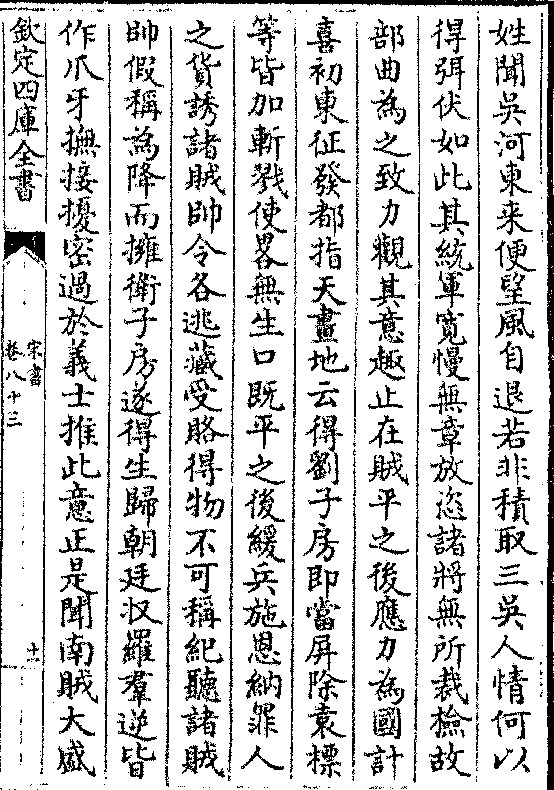 姓聞吳河東来便望風自退若非積取三吳人情何以
得弭伏如此其統軍寛慢無章放恣諸將無所裁檢故
部曲為之致力觀其意趣止在賊平之後應力為國計
喜初東征發都指天畫地云得劉子房即當屏除袁標
等皆加斬戮使畧無生口既平之後緩兵施恩納罪人
之貨誘諸賊帥令各逃藏受賂得物不可稱紀聽諸賊
帥假稱為降而擁衛子房遂得生歸朝廷収羅羣逆皆
作爪牙撫接擾密過於義士推此意正是聞南賊大盛
欽定四庫全書
宋書
卷八十三
十一